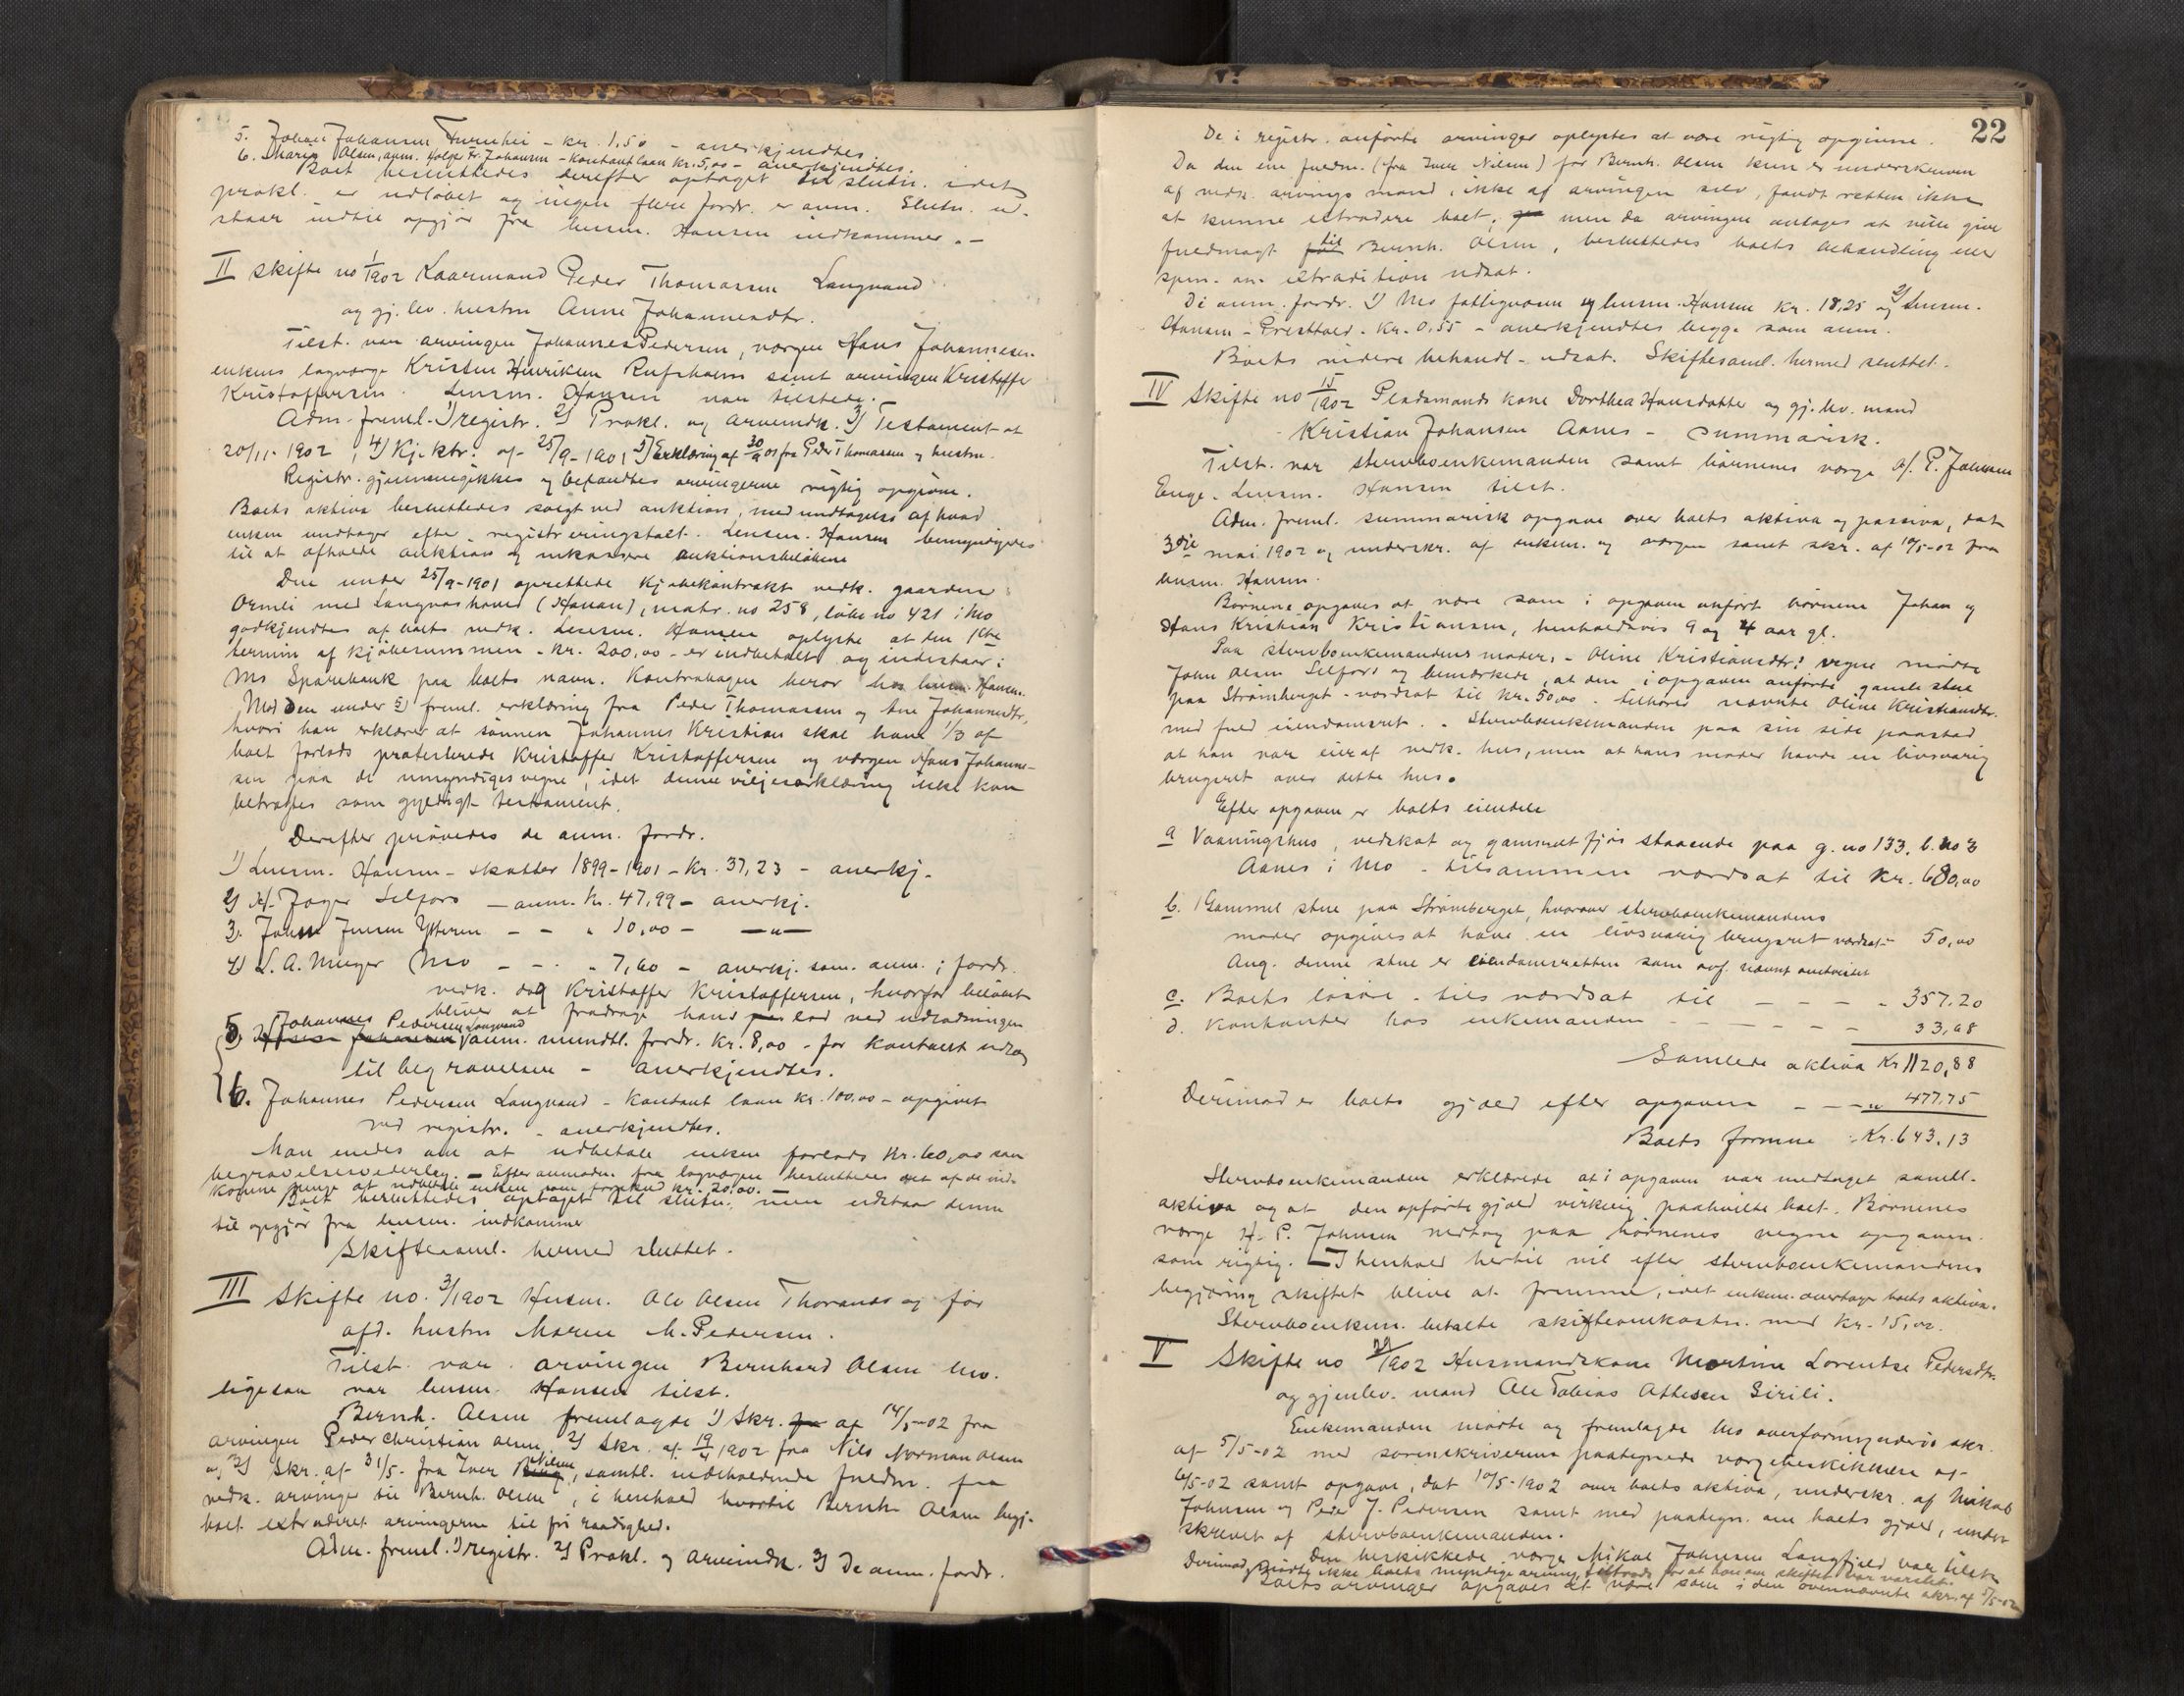 5. Johan Johansen Furuhei - kr. 1,50 - anerkjendtes
6. Marie Olsen, anm. Holger Fr. Johansen - Kontant laan kr. 5,00 - anerkjendtes.
Boet besluttedes derefter optaget til slutn. idet
prokl. er udløbet og ingen flere fordr. er anm. Slutn. ud-
staar indtil opgjør fra lensm. Hansen indkommer. -
II Skifte no 1/1902 Kaarmand Peder Thomassen Langvand
og gj. lev. hustru Anne Johannesdtr.
Tilst. var arvingen Johannes Pedersen, værgen Hans Johannesen
enkens lagværge Kristen Henriksen Rufsholm samt arvingen Kristoffer
Kristoffersen. Lensm. Hansen var tilstede.
Adm. freml. 1) registr. 2) Prokl. og arveindk. 3) Testament af
20/11-1902, 4) Kj.ktr. af 25/9-1901 5) Erklæring af 30/9 01 fra Peder Thomassen og hustru.
Registr. gjennemgikkes og befandtes arvingerne rigtig opgivne.
Boets aktiva besluttedes solgt ved auktion, med undtagelse af hvad
enken undtager efter registreringstakt. Lensm. Hansen bemyndigedes
til at afholde auktion og inkassere auktionsbeløbene
Den under 25/9-1901 oprettede kjøbekontrakt vedk. gaarden
Ormli med Langvashaved (Hauan), matr. no 258, løbe no 421 i Mo
godkjendtes af boets vedk. Lensm. Hansen oplyste at den 1ste
termin af kjøbesummen - kr. 200,00 - er indbetalt og indestaar i
Mo Sparebank paa boets navn. Kontrabogen beror hos lensm. Hansen.
Mod den under 5) freml. erklæring fra Peder Thomassen og Ane Johannesdtr,
hvori han erklærer at sønnen Johannes Kristian skal have 1/3 af
boet forlods protesterede Kristoffer Kristoffersen og værgen Hans Johanne-
sen paa de umyndiges vegne, idet denne viljeserklæring ikke kan
betragtes som gyldigt testament.
Derefter prøvedes de anm. fordr.
1) Lensm. Hansen - skatter 1899-1901 - kr. 37,23 - anerkj.
2) H. Jager Selfors - anm. kr. 47,99 - anerkj.
3. Johan Jensen Ytteren - - " 10,00 - -"-
4) L. A. Meyer Mo - - . " 7,60 - anerkj. som. anm. i fordr.
vedk. dog Kristoffer Kristoffersen, hvorfor beløbet
bliver at fradrage hans lod ved udlodningen
5) Johannes Pedersen Langvand anm. mundtl. fordr. kr. 8,00 - for kontant udlæg
til begravelsen - anerkjendtes.
6. Johannes Pedersen Langvand - Kontant laan kr. 100,00 - opgivet
ved registr. - anerkjendtes.
Man enedes om at udbetale enken forlods kr. 60,00 som
begravelsesvederlag. - Efter anmodn. fra lagværgen besluttedes det af de ind-
komne penge at udbetale enken som forskud kr. 20,00.
Boet besluttedes optaget til slutn., men udstaar denne
til opgjør fra lensm. indkommer
Skiftesaml. hermed sluttet.
III Skifte no. 3/1902 Husm. Ole Olsen Thoranes og før
afd. hustru Maren M. Pedersen.
Tilst. var arvingen Bernhard Olsen Mo.
ligesaa var lensm. Hansen tilst.
Bernh. Olsen fremlagde 1) Skr. af 14/5-02 fra
arvingen Peder Christian Olsen, 2) Skr. af 19/4 1902 fra Nils Norman Olsen
og 3) Skr. af 31/5- fra Iver Nilsen, samtl. indeholdende fuldm. fra
vedk. arvinger til Bernh. Olsen, i henhold hvortil Bernh. Olsen begj.
boet extraderet arvingerne til fri raadighed.
Adm. freml. 1) registr. 2) Prokl. og arveindk. 3) De anm. fordr.
22
De i registr. anførte arvinger oplystes at være rigtig opgivne.
Da den ene fuldm. (fra Iver Nilsen) for Bernh. Olsen kun er underskreven
af vedk. arvings mand, ikke af arvingen selv, fandt retten ikke
at kunne extradere boet, men da arvingen antages at ville give
fuldmagt til Bernh. Olsen, besluttedes boets behandling eller
spm. om extradition udsat.
De anm. fordr. 1) Mo fattigvæsen og lensm. Hansen kr. 18,25 og 2) Lensm.
Hansen - Presttold - kr. 0,55 - anerkjendtes begge som anm.
Boets videre behandl. udsat. Skiftesaml. hermed sluttet.
IV Skifte no 15/1902 Pladsmands kone Dorthea Hansdatter og gj. lev. mand
Kristian Johansen Aanes - summarisk.
Tilst. var stervboenkemanden samt børnenes værge H. P. Johnsen
Enge. Lensm. Hansen tilst.
Adm. freml. summarisk opgave over boets aktiva og passiva, dat
3dje mai 1902 og underskr. af enkem. og værgen samt skr. af 10/5-02 fra
lensm. Hansen.
Børnene opgaves at være som i opgaven anført børnene Johan og
Hans Kristian Kristiansen, henholdsvis 9 og 4 aar gl.
Paa stervboenkemandens moder, - Oline Kristiansdtr.s vegne mødte
John Olsen Selfors og bemærkede, at den i opgaven anførte gamle stue
paa Strømberget - værdsat til kr. 50,00 - tilhører nævnte Oline Kristiansdtr.
med fuld eiendomsret. - Stervboenkemanden paa sin side paastod
at han var eier af vedk. hus, men at hans moder havde en livsvarig
brugsret over dette hus.
Efter opgaven er boets eiendele
a Vaaningshus, vedskot og gammelt fjøs staaende paa g. no 133, b. no 3
Aanes i Mo - tilsammen værdsat til kr. 680,00
b. Gammel stue paa Strømberget, hvorover stervboenkemandens
moder opgives at have en livsvarig brugsret værdsat - 50,00
Ang. denne stue er eiendomsretten som ovf. nævnt omtvistet
c. Boets løsøre - tils værdsat til - - - - 357.20
d. Kontanter hos enkemanden - - - - - - 33,68
Samlede aktiva Kr 1120,88
Derimod er boets gjæld efter opgaven - - - " 477.75
Boets formue Kr. 643.13
Stervboenkemanden erklærede at i opgaven var medtaget samtl.
aktiva og at den opførte gjæld virkelig paahvilte boet. Børnenes
værge H. P. Johnsen vedtog paa børnenes vegne opgaven
som rigtig. - I henhold hertil vil efter stervboenkemandens
begjæring skiftet blive at fremme, idet enkem. overtager boets aktiva.
Stervboenkem. betalte skifteomkostn. med kr. 15,00.
V Skifte no 20/1902 Husmandskone Martine Lorentse Pedersdtr.
og gjenlev. mand Ole Tobias Attesen Sirili.
Enkemanden mødte og fremlagde Mo overformynderis skr.
af 5/5-02 med sorenskriverens paategnede værgebeskikkelse af
6/5-02 samt opgave, dat 10/5-1902 over boets aktiva, underskr. af Mikal
Johnsen og Peder J. Pedersen samt med paategn. om boets gjæld, under-
skrevet af stervboenkemanden.
Den beskikkede værge Mikal Johnsen Langfjeld var tilst.
Derimod mødte ikke boets myndige arving, tiltrods for at han om skiftet var varslet.
Boets arvinger opgaves at være som i den ovennævnte skr. af 5/5-02